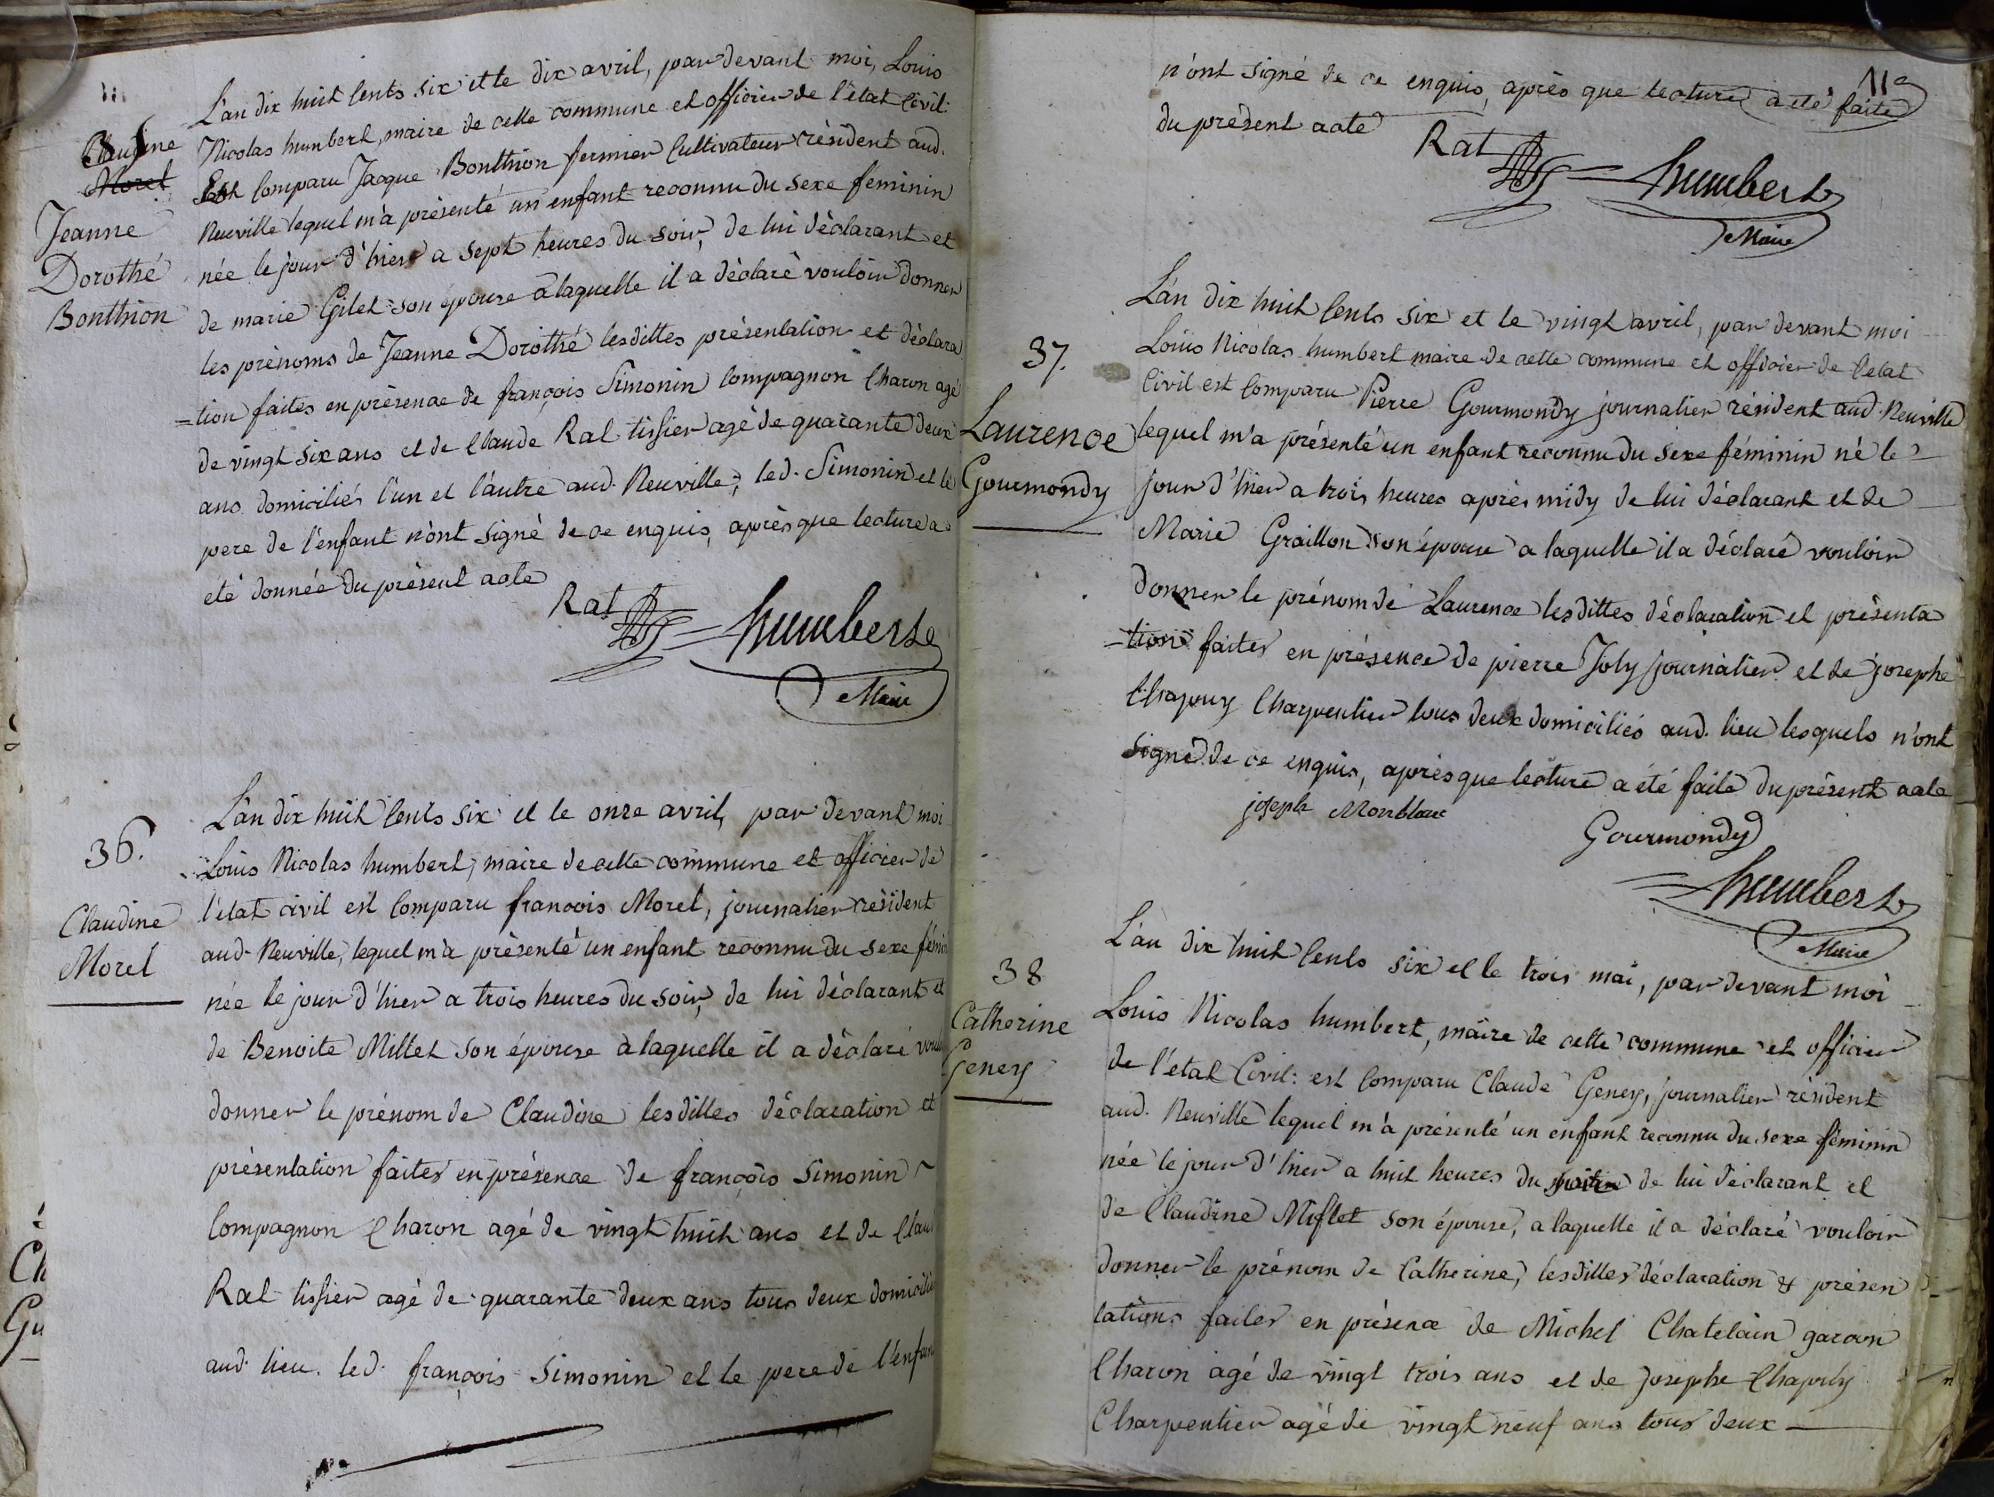 Claudine
Morel
Jeanne
Dorothé
Bonthion
L'an dix huit cents six et le dix avril, par devant moi, Louis
Nicolas humbert, maire de cette commune et officier de l'état Civil
Est Comparu Jacque Bonthion fermier Cultivateur résident aud.
Neuville lequel m'a présenté un enfant reconnu du sexe féminin
née le jour d'hier a sept heures du soir, de lui déclarant et
de marie Gilet son épouse a laquelle il a déclaré vouloir donner
les prénoms de Jeanne Dorothé lesdittes présentation et déclara
=tion faites en présence de françois Simonin Compagnon Charon agé
de vingt six ans et de Claude Rat tissier agé de quarante deux
ans domiciliés l'un et l'autre aud. Neuville; led. Simonin et le
pere de l'enfant n'ont signé de ce enquis, après que lecture a
eté donnée du présent acte
Rat humbert
Maire
36.
Claudine
Morel
L'an dix huit Cents six et le onze avril, par devant moi
Louis Nicolas humbert, maire de cette commune et officier de
l'état civil est Comparu françois Morel, journalier résident
aud. Neuville, lequel m'a présenté un enfant reconnu du sexe fémin
née le jour d'hier a trois heures du soir, de lui déclarant et
de Benoite Millet son épouse a laquelle il a déclaré voulo
donner le prénom de Claudine lesdittes déclaration et
présentation faites en présence de françois Simonin
Compagnon Charon agé de vingt huit ans et de Clau
Rat tissier agé de quarante deux ans tous deux domicilié
aud. lieu. led. françois Simonin et le pere de l'enfan
11
n'ont signé de ce enquis, après que lecture a été faite
du présent acte
Rat humbert
Maire
37.
Laurence
Gourmondy
L'an dix huit Cents six et le vingt avril, par devant moi
Louis Nicolas humbert maire de cette commune et officier de l'état
Civil est Comparu Pierre Gourmondy journalier résident aud. Neuville
lequel m'a présenté un enfant reconnu du sexe féminin né le
jour d'hier a trois heures après midy de lui déclarant et de
Marie Graillon son épouse a laquelle il a déclaré vouloir
donner le prénom de Laurence lesdittes déclaration et présenta
=tions faites en présence de pierre Joly journalier et de josephe
Chapuy Charpentier tous deux domiciliés aud. lieu lesquels n'ont
signé de ce enquis, après que lecture a été faite du présent acte
joseph Gourmondy
humbert
Maire
38
Catherine
Geney
L'an dix huit Cents six et le trois mai, par devant moi
Louis Nicolas humbert, maire de cette commune et officier
de l'état Civil: est Comparu Claude Geney, journalier résident
aud. Neuville lequel m'a présenté un enfant reconnu du sexe féminin
née le jour d'hier a huit heures du matin de lui déclarant et
de Claudine son épouse, a laquelle il a déclaré vouloir
donner le prénom de Catherine, lesdittes déclaration & présen
tations faites en présence de Michel Chatelain garcon
Charon agé de vingt trois ans et de Josephe Chapuy
Charpentier agé de vingt neuf ans tous deux